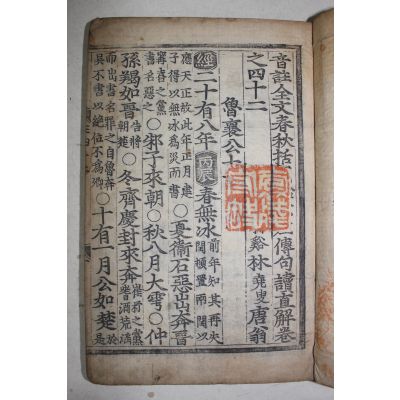 音註全文春秋括傳句讀直解卷
之四十二 谿林堯叟唐翁
魯襄公十
經二十有八年丙辰春無冰前年知其再失閏頓置兩閏以
應天正故此年正月建子得以無冰爲災而書○夏衛石惡出奔晉
甯喜之黨書名惡之○邾子來朝○秋八月大雩○仲
孫羯如晉告將朝楚○冬齊慶封來奔崔杼之黨耆酒荒淫
而出書名罪之自魯奔吳不書以絕位不爲卿○十有一月公如楚